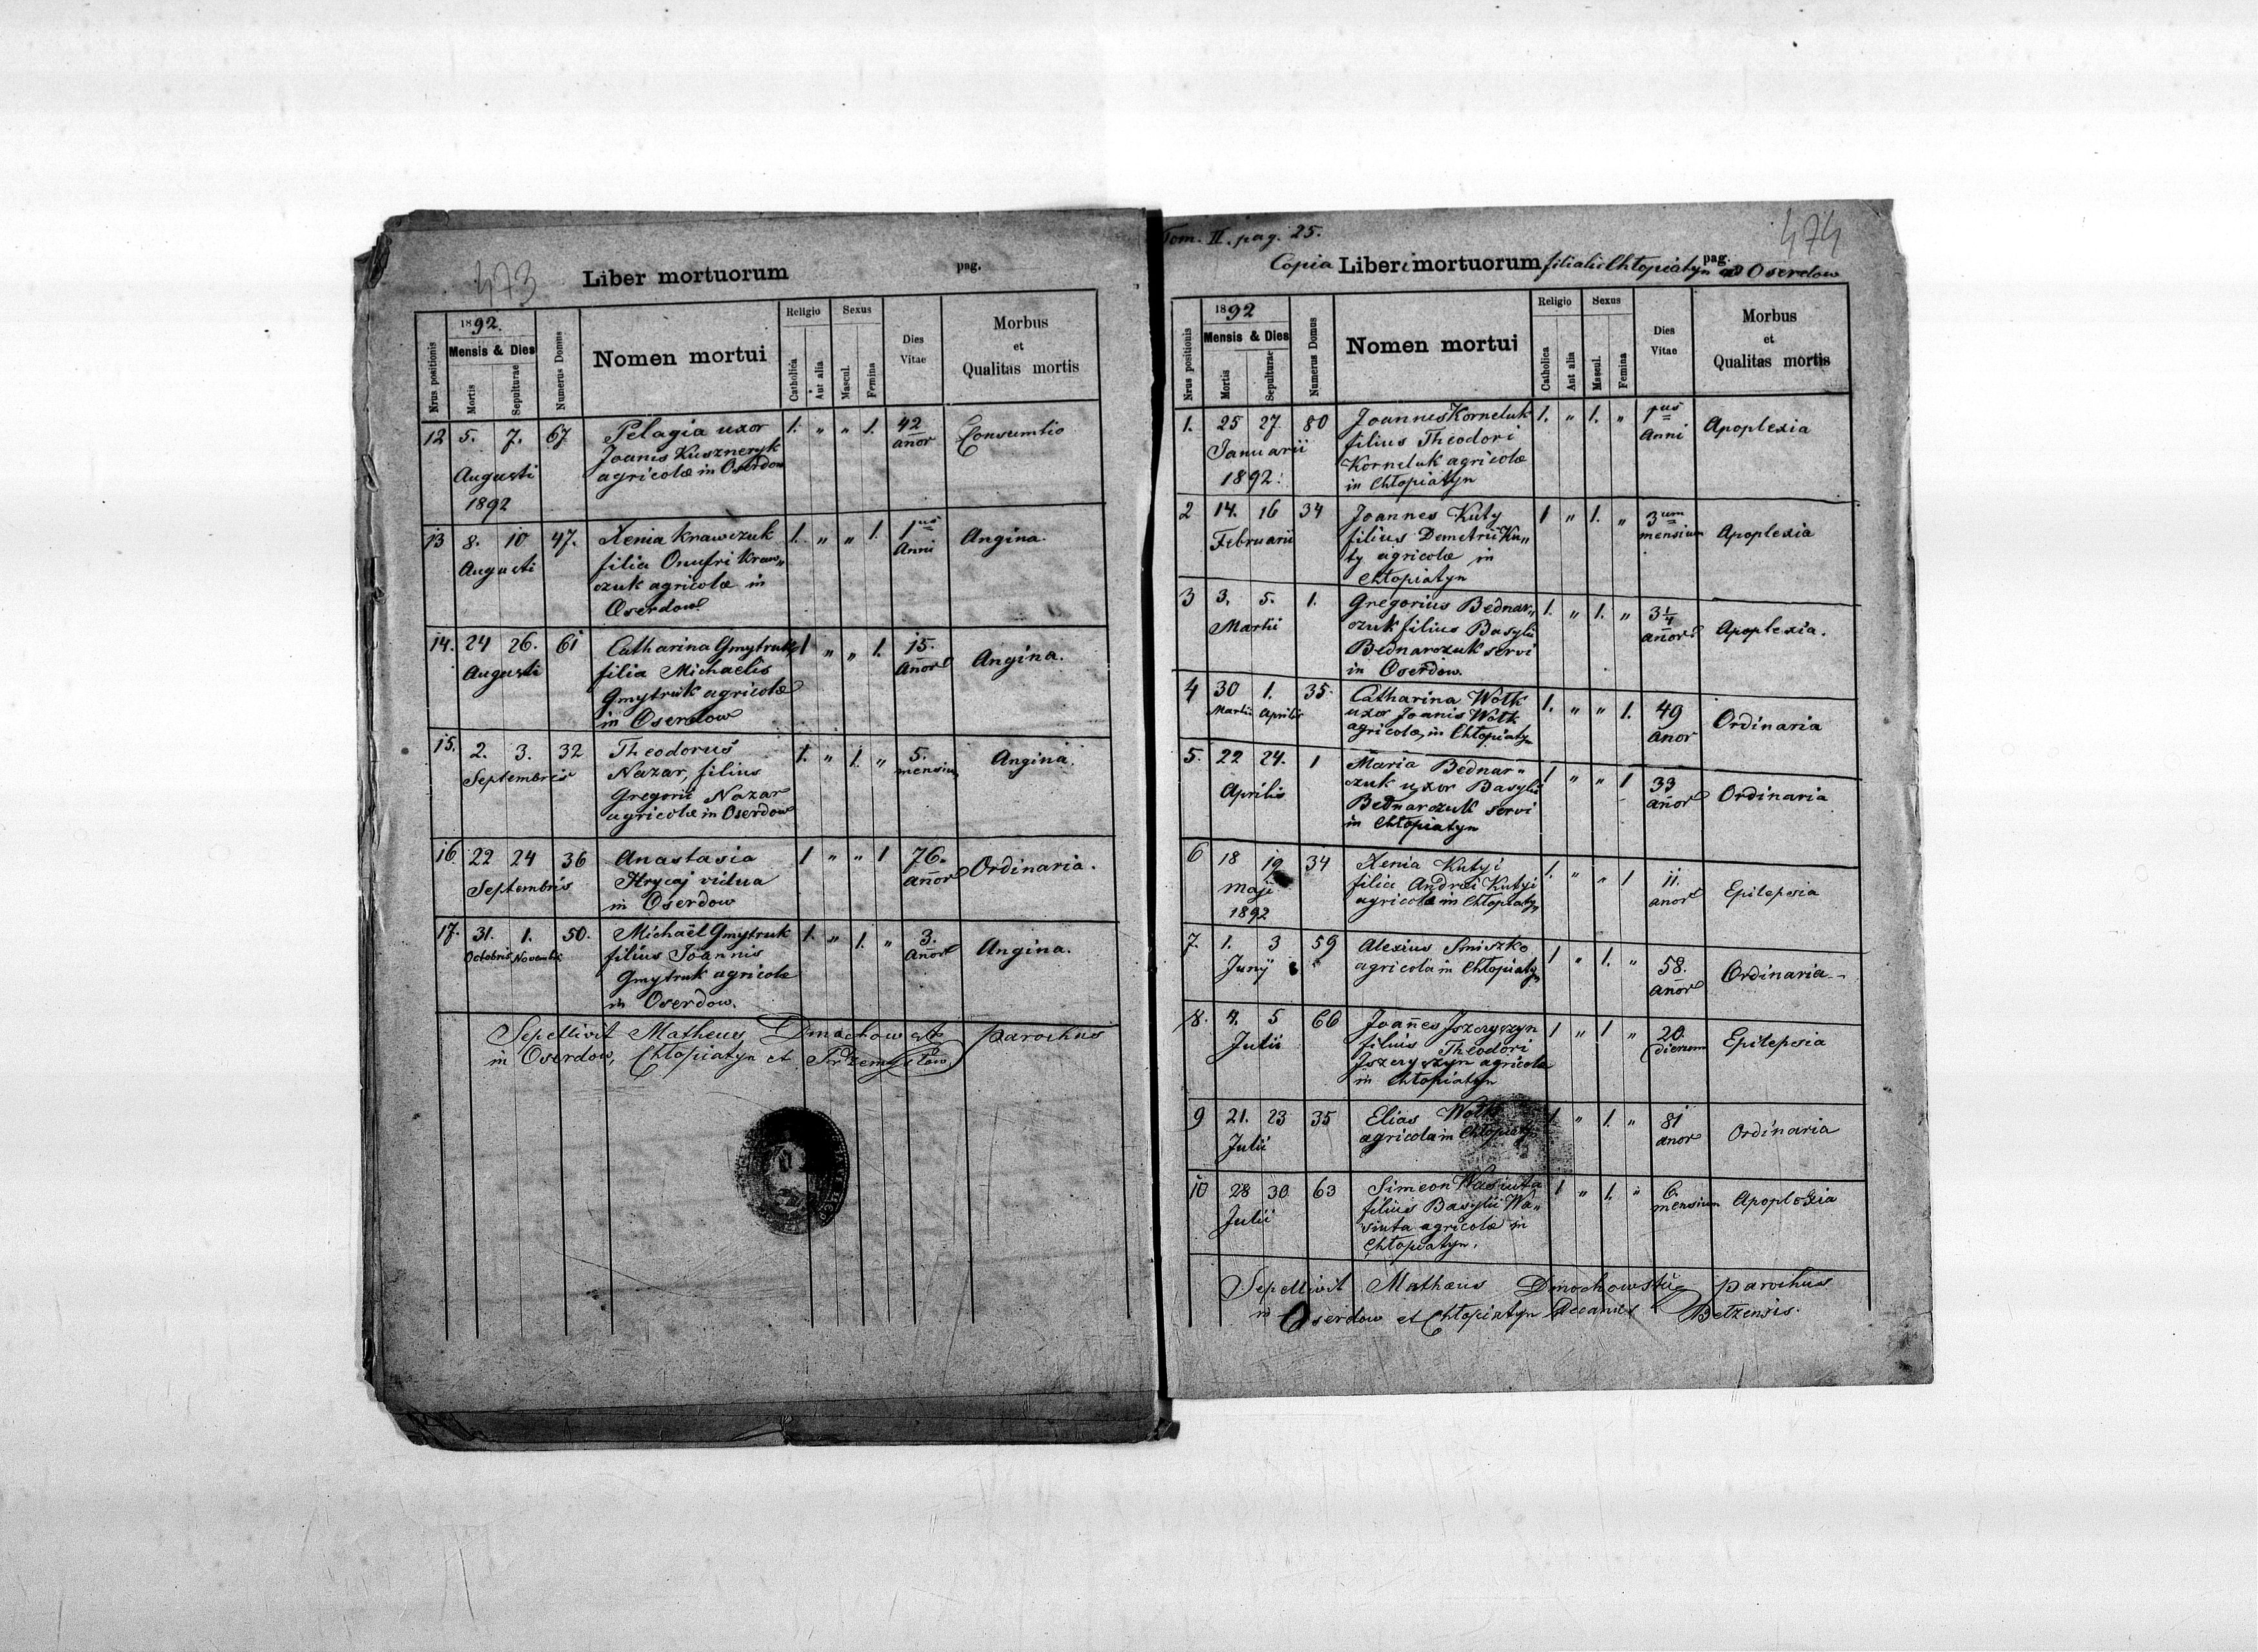 473
Liber mortuorum
pag.
Nrus positionis
1892.
Mensis & Dies
Mortis
Sepulturae
Numerus Domus
Nomen mortui
Religio
Catholica
Aut alia
Sexus
Mascul.
Femina
Dies
Vitae
Morbus
et
Qualitas mortis
12 5. 7. 67 Pelagia uxor 1. " " 1. 42 Consumtio
Joanis Kuszneryk añor
Augusti agricolæ in Oserdow
1892
13 8. 10 47. Xenia Krawczuk 1. " " 1. 1us Angina.
Augusti filia Onufri Kraw„ Anni
czuk agricolæ in
Oserdow
14. 24 26. 61 Catharina Gmytruk 1 " " 1. 15. Angina.
Augusti filia Michaelis añor
Gmytruk agricolæ
in Oserdow
15. 2. 3. 32 Theodorus 1. " 1. " 5. Angina.
Septembris Nazar, filius mensium
Gregorii Nazar
agricolæ in Oserdow
16. 22 24 36 Anastasia 1 " " 1 76. Ordinaria.
Septembris Hrycaj vidua añor
in Oserdow
17. 31. 1. 50. Michaël Gmytruk 1. " 1. " 3. Angina.
Octobris Novemb. filius Joannis añor
Gmytruk agricolæ
in Oserdow.
Sepellivit Matheus Dmochowski parochus
in Oserdow, Chłopiatyn et Przemysłow
Tom. II. pag. 25.
474
Copia Liberi mortuorum filialis Chłopiatyn ad Oserdow
pag.
Nrus positionis
1892
Mensis & Dies
Mortis
Sepulturae
Numerus Domus
Nomen mortui
Religio
Catholica
Aut alia
Sexus
Mascul.
Femina
Dies
Vitae
Morbus
et
Qualitas mortis
1. 25 27. 80 Joannes Korneluk 1. " 1. " 1us Apoplexia
Januarii filius Theodori Anni
1892: Korneluk agricolæ
in Chłopiatyn
2 14. 16 34 Joannes Kuty 1 " 1. " 3um Apoplexia
Februarii filius Demetrii Ku„ mensium
ty agricolæ in
Chłopiatyn
3 3. 5. 1. Gregorius Bednar„ 1. " 1. " 3 1/4 Apoplexia.
Martii czuk filius Basylii añor
Bednarczuk servi
in Oserdow.
4 30 1. 35. Catharina Wołk 1. " " 1. 49 Ordinaria
Martii Aprilis uxor Joanis Wołk anor
agricolæ, in Chłopiatyn
5. 22 24. 1 Maria Bednar„ 1 " " 1 33 Ordinaria
Aprilis czuk uxor Basylii añor
Bednarczuk servi
in Chłopiatyn
6 18 19 34 Xenia Kutyi 1. " " 1 11. Epilepsia
Maji filia Andrei Kutyi anor
1892 agricolæ in Chłopiatyn
7. 1. 3 59 Alexius Smiszko 1 " 1. " 58. Ordinaria
Junij agricola in Chłopiatyn añor
8. 4. 5 66 Joañes Iszczyszyn 1 " 1 " 20 Epilepsia
Julii filius Theodori dierum
Iszczyszyn agricolæ
in Chłopiatyn
9 21. 23 35 Elias Wołk 1 " 1. " 81 Ordinaria
Julii agricola in Chłopiatyn anor
10 28 30 63 Simeon Wasiuta 1 " 1. " 6. Apoplexia
Julii filius Basylii Wa„ mensium
siuta agricolæ in
Chłopiatyn.
Sepellivit Mathæus Dmochowski parochus
in Oserdow et Chłopiatyn Decanus Bełzensis.